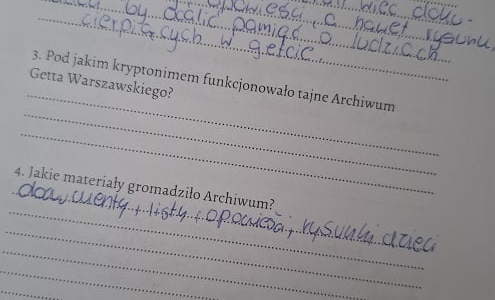 więc doku-
opowieści, a nawet rysunki,
by ocalić pamięć o ludziach
cierpiących w getcie.
3. Pod jakim kryptonimem funkcjonowało tajne Archiwum
Getta Warszawskiego?
4. Jakie materiały gromadziło Archiwum?
dokumenty, listy, opowieści, rysunki dzieci